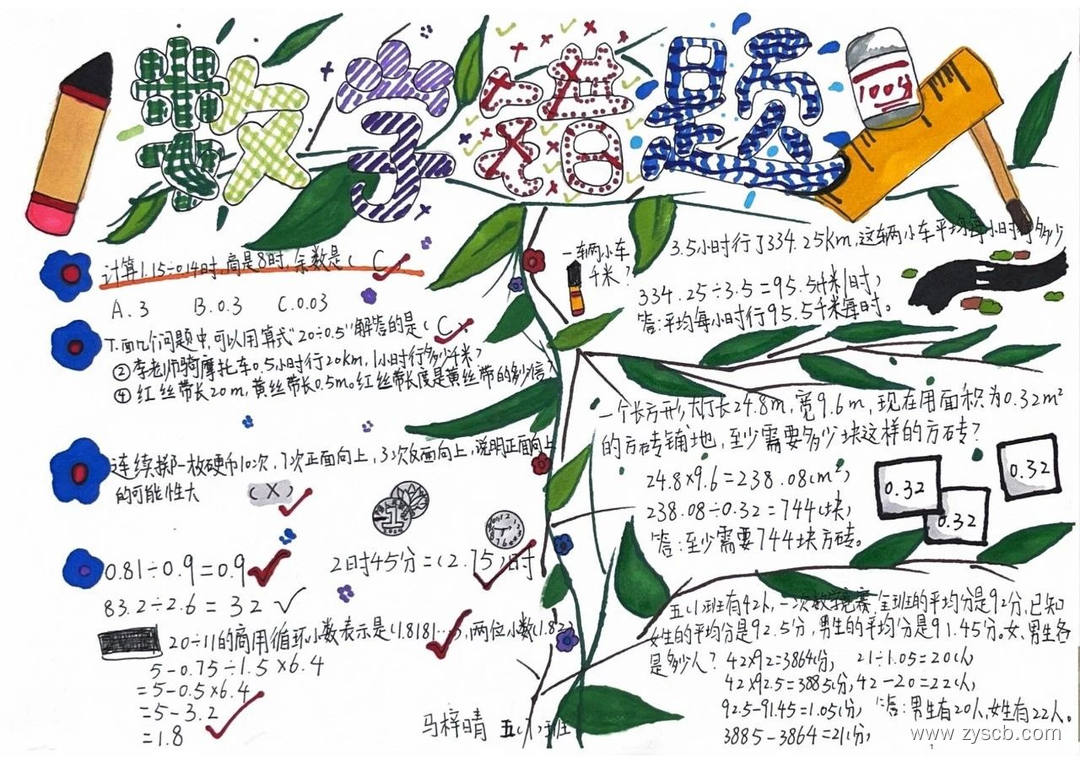 数学错题
100分
计算1.15÷0.14时,商是8时,余数是( C )
A.3 B.0.3 C.0.03
下面几个问题中,可以用算式"20÷0.5"解答的是( C )
②李老师骑摩托车0.5小时行20km,1小时行多少千米?
④红丝带长20m,黄丝带长0.5m。红丝带长度是黄丝带的多少倍?
连续掷一枚硬币10次,7次正面向上,3次反面向上,说明正面向上
的可能性大 (X)
0.81÷0.9=0.9
2时45分=(2.75)时
83.2÷2.6=32
20÷11的商用循环小数表示是(1.8181…),两位小数(1.82)
5-0.75÷1.5×6.4
=5-0.5×6.4
=5-3.2
=1.8
马梓晴 五(小)班
一辆小车3.5小时行了334.25km,这辆小车平均每小时行多少
千米?
334.25÷3.5=95.5(千米/时)
答:平均每小时行95.5千米每时。
一个长方形大厅长24.8m,宽9.6m,现在用面积为0.32m²
的方砖铺地,至少需要多少块这样的方砖?
24.8×9.6=238.08(m²)
238.08÷0.32=744(块)
答:至少需要744块方砖。
0.32
0.32
0.32
五(1)班有42人,一次数学竞赛,全班的平均分是92分,已知
女生的平均分是92.5分,男生的平均分是91.45分。女、男生各
是多少人? 42×92=3864(分) 21÷1.05=20(人)
42×92.5=3885(分) 42-20=22(人)
92.5-91.45=1.05(分) 答:男生有20人,女生有22人。
3885-3864=21(分)
www.zyscb.com